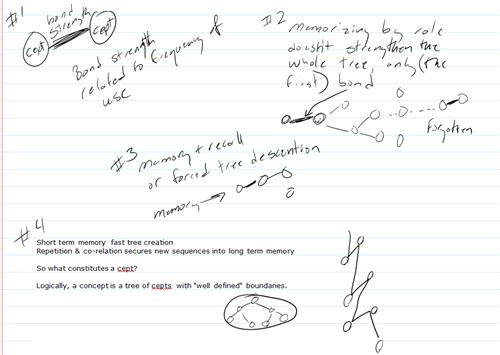 #1
bond
strength
cept
cept
Bond strength
related to frequency of
use
#2 memorizing by role
doesn't strengthen the
whole tree, only (the
first) bond
forgotten
#3 memory + recall
or forced tree descention
memory
#4
Short term memory fast tree creation
Repetition & co-relation secures new sequences into long term memory
So what constitutes a cept?
Logically, a concept is a tree of cepts with "well defined" boundaries.